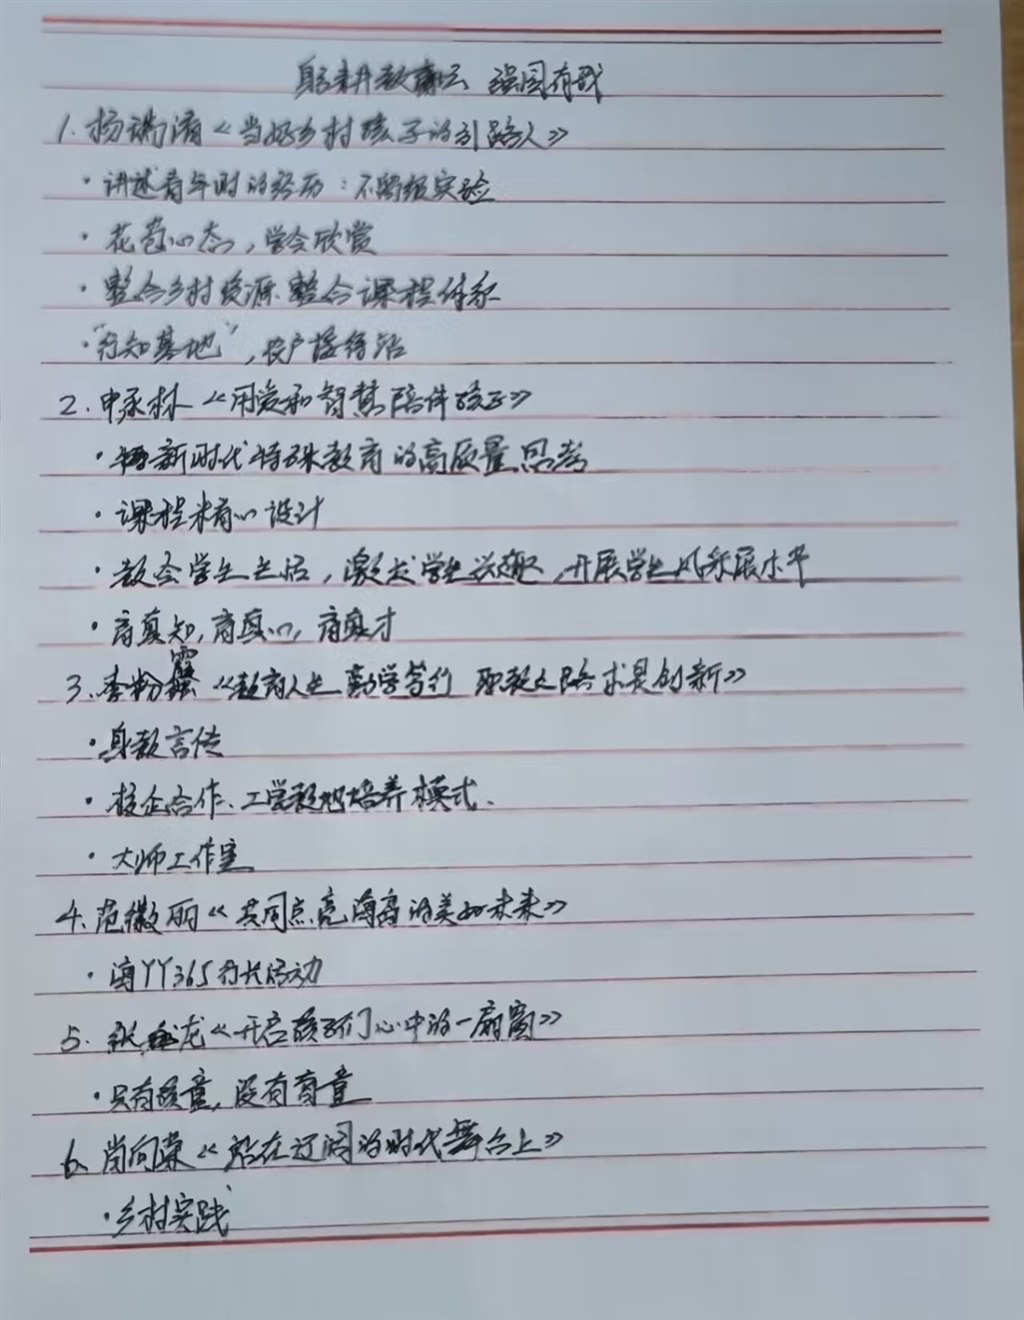 躬耕教育坛 强国有我
1. 杨瑞清《当好乡村孩子的引路人》
· 讲述青年时的经历：不留级实验
· 花苞心态，学会欣赏
· 整合乡村资源.整合课程体系
·"行知基地"，农户接待
2. 申承林《用爱和智慧陪伴孩子》
· 新时代特殊教育的高质量思考
· 课程精心设计
· 教会学生生活，激发学生兴趣，开展学生风采展水平
· 育真知，育真心，育真才
3. 李粉霞《教育人生勤学笃行 职教之路求是创新》
· 身教言传
· 校企合作、工学培养模式.
· 大师工作室
4. 范徽丽《共同点亮海岛的美好未来》
· 海YY365行长活动
5. 张龙《开启孩子们心中的一扇窗》
· 只有孩童，没有盲童
6. 尚向荣《站在辽阔的时代舞台上》
· 乡村实践